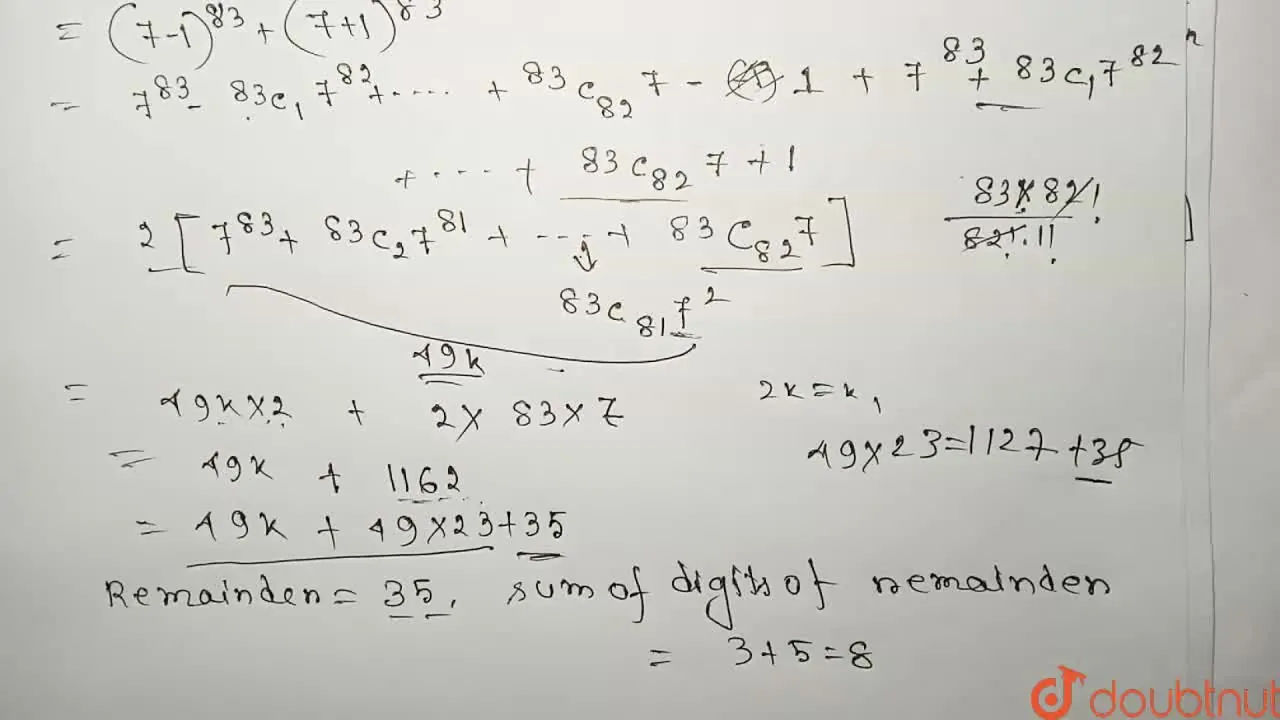 = (7-1)^83 + (7+1)^83
= 7^83 - 83c₁ 7^82 + ···· + 83c₈₂ 7 - 1 + 7^83 + 83c₁7^82
+ ···· + 83c₈₂ 7 + 1
83×82!
82!·1!
= 2 [ 7^83 + 83c₂ 7^81 + ···· + 83C₈₂ 7 ]
83c₈₁ 7²
49k
= 49k×2 + 2× 83×7
2k = k₁
= 49k + 1162
49×23=1127 +35
= 49k + 49×23+35
Remainder = 35, sum of digits of remainder
= 3+5=8
doubtnut